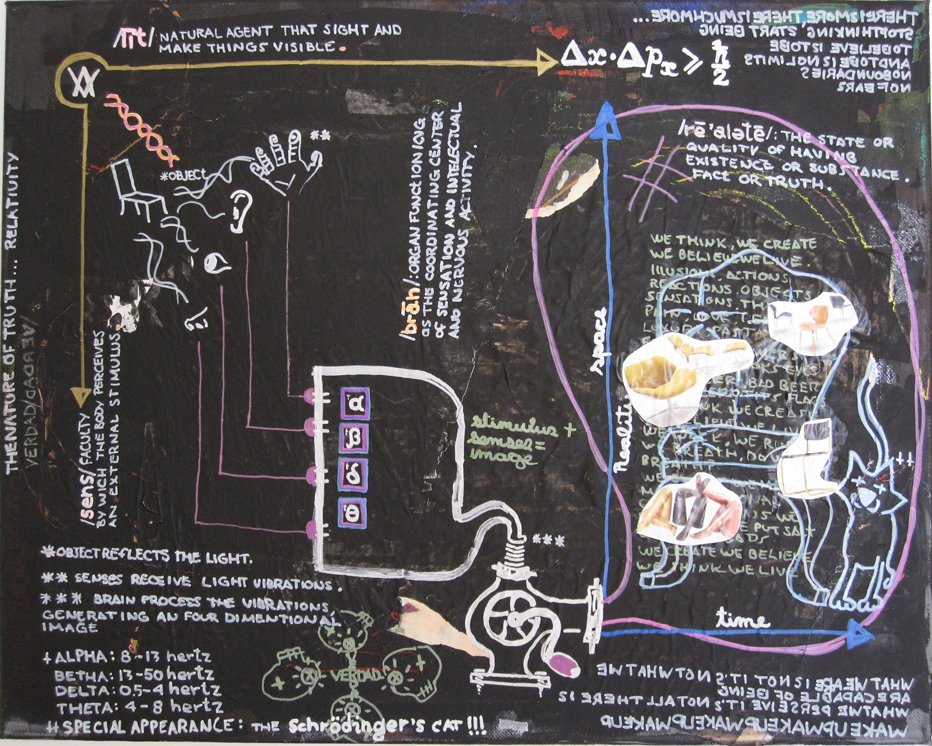 /līt/: NATURAL AGENT THAT SIGHT AND
MAKE THINGS VISIBLE.
Δx·Δpx ⩾ ħ/2
THERE IS MORE, THERE IS MUCH MORE ...
STOP THINKING START BEING
TO BELIEVE IS TO BE
AND TO BE IS NO LIMITS
NO BOUNDARIES
NO FEARS
/rē'alətē/: THE STATE OR
QUALITY OF HAVING
EXISTENCE OR SUBSTANCE.
FACT OR TRUTH.
THE NATURE OF TRUTH.... RELATIVITY
VERDAD/DADREV
*OBJECT
**
/brān/: ORGAN FUNCTIONIONG
AS THE COORDINATING CENTER
OF SENSATION AND INTELECTUAL
AND NERVOUS ACTIVITY.
/sens/ FACULTY
BY WICH THE BODY PERCEIVES
AN EXTERNAL STIMULUS
WE THINK, WE CREATE
WE BELIEVE WE LIVE.
ILLUSION ACTIONS
REACTIONS OBJECTS
SENSATIONS
BAD BEER
WE CREATE WE BELIEVE
WE THINK WE LIVE
space
Reality
time
stimulus +
senses=
image
***
*OBJECT REFLECTS THE LIGHT.
** SENSES RECEIVE LIGHT VIBRATIONS.
*** BRAIN PROCESS THE VIBRATIONS
GENERATING AN FOUR DIMENTIONAL
IMAGE
+ALPHA: 8-13 hertz
BETHA: 13-50 hertz
DELTA: 0.5-4 hertz
THETA: 4-8 hertz
VERDAD
# SPECIAL APPEARANCE: THE schrödinger's CAT !!!
WHAT WE ARE IS NOT IT'S NOT WHAT WE
ARE CAPABLE OF BEING
WHAT WE PERSEIVE IT'S NOT ALL THERE IS
WAKE UP WAKE UP WAKE UP WAKE UP